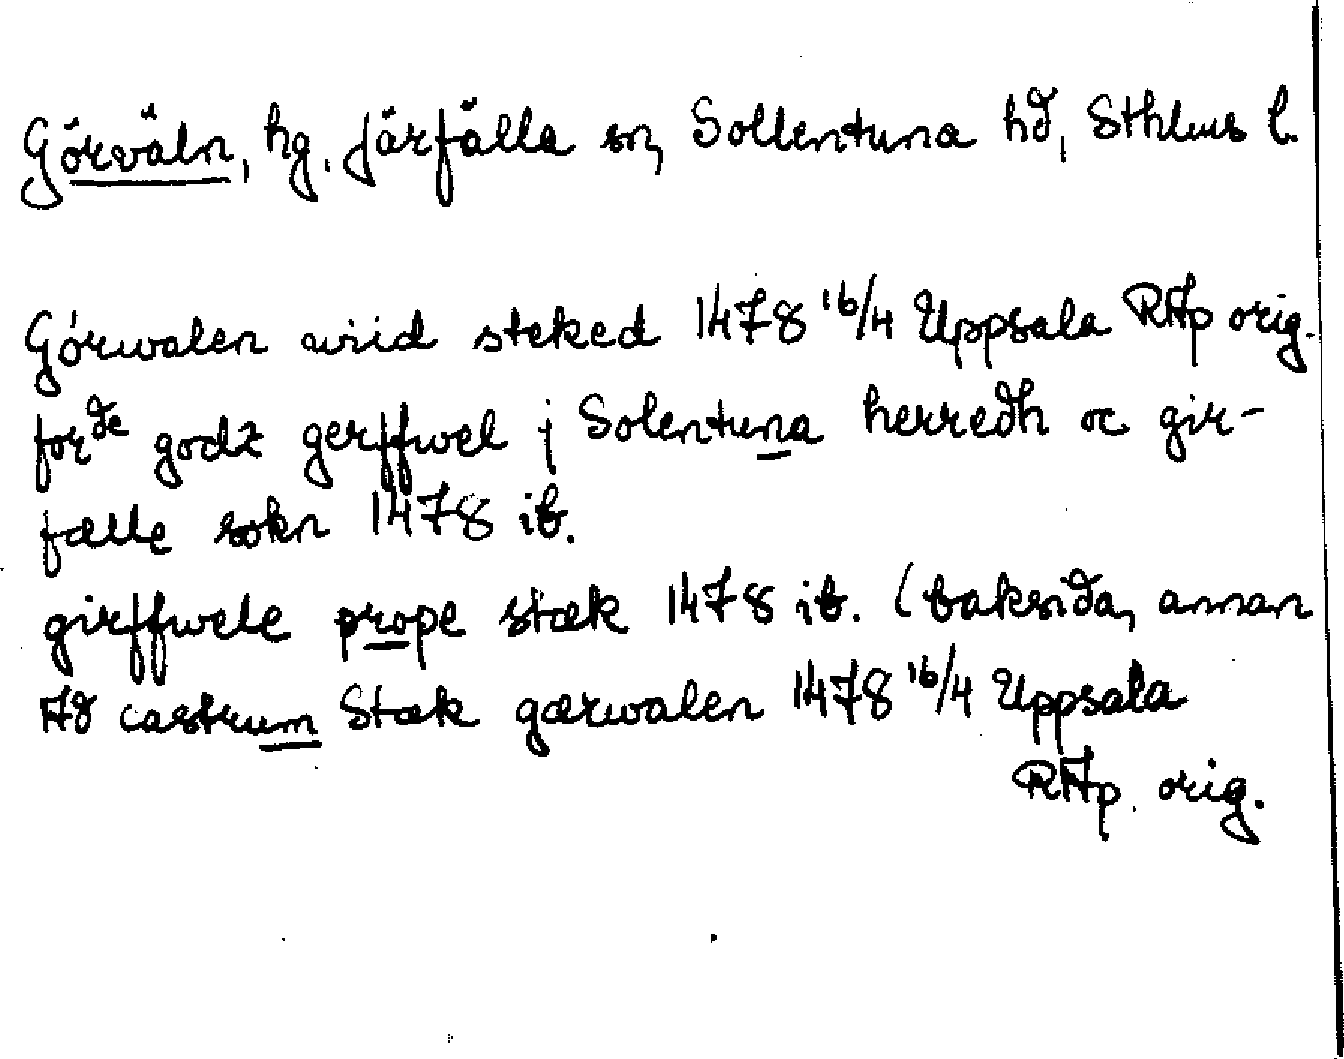 Görväln, hg, Järfälla sn, Sollentuna hd, Sthlms l.
Görwalen wiid steked 1478 16/4 Uppsala RAp orig.
forde godz gerffwel j Solentuna herredh oc gir-
fælle sokn 1478 ib.
girffwele prope stæk 1478 ib. (baksida, annan
Ad castrum Stæk gærwalen 1478 16/4 Uppsala
RAp. orig.